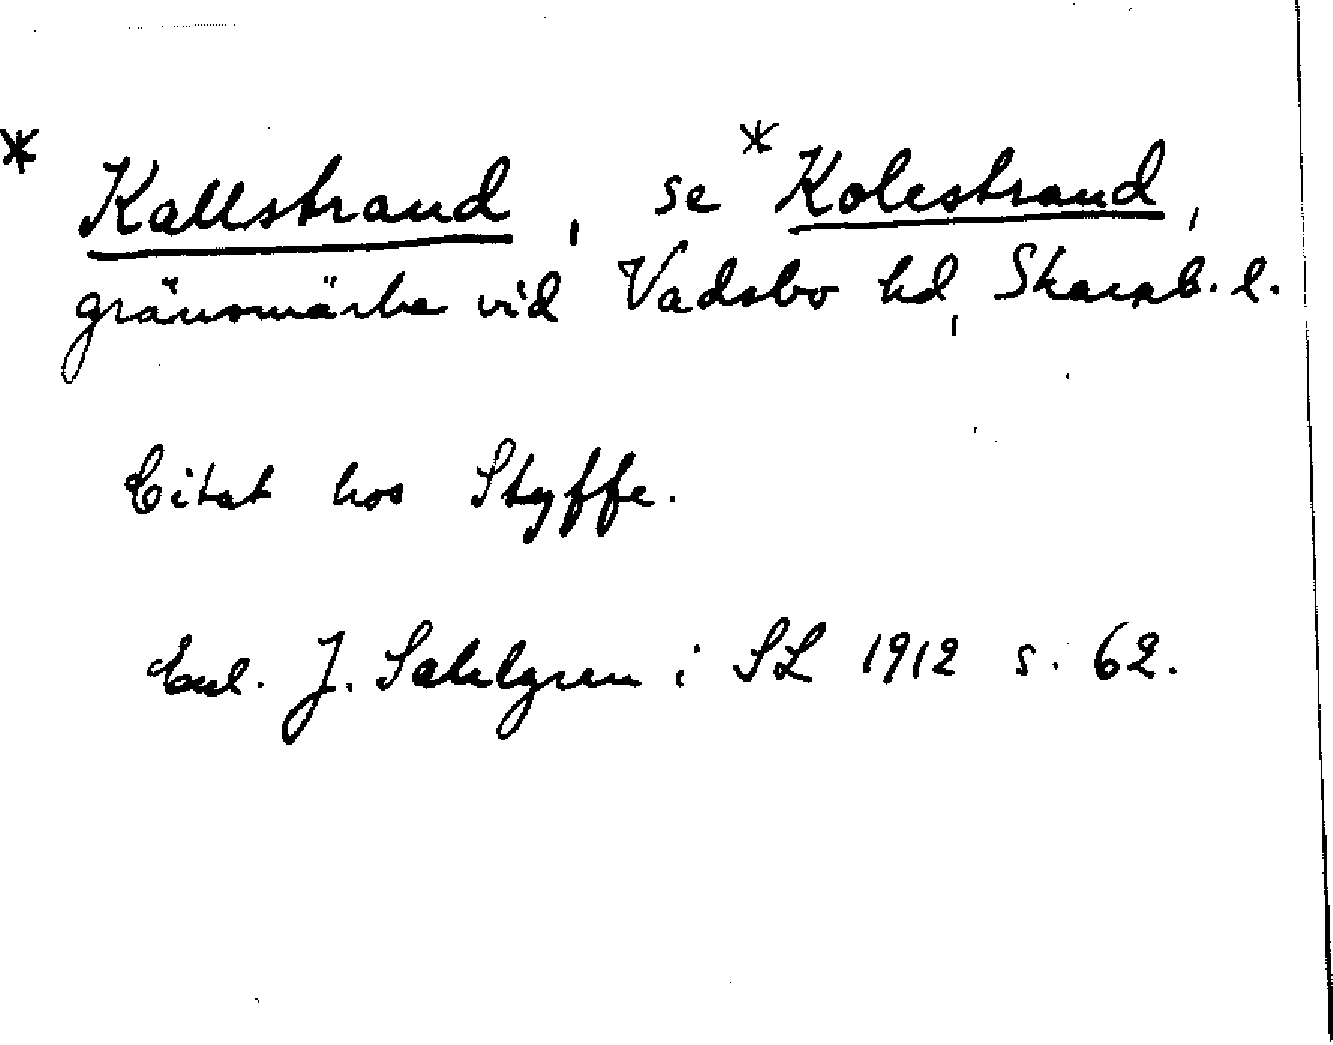 * Kallstrand, se *Kolestrand,
gränsmärke vid Vadsbo hd, Skarab. l.
Citat hos Styffe.
Enl. J. Sahlgren i SL 1912 s. 62.